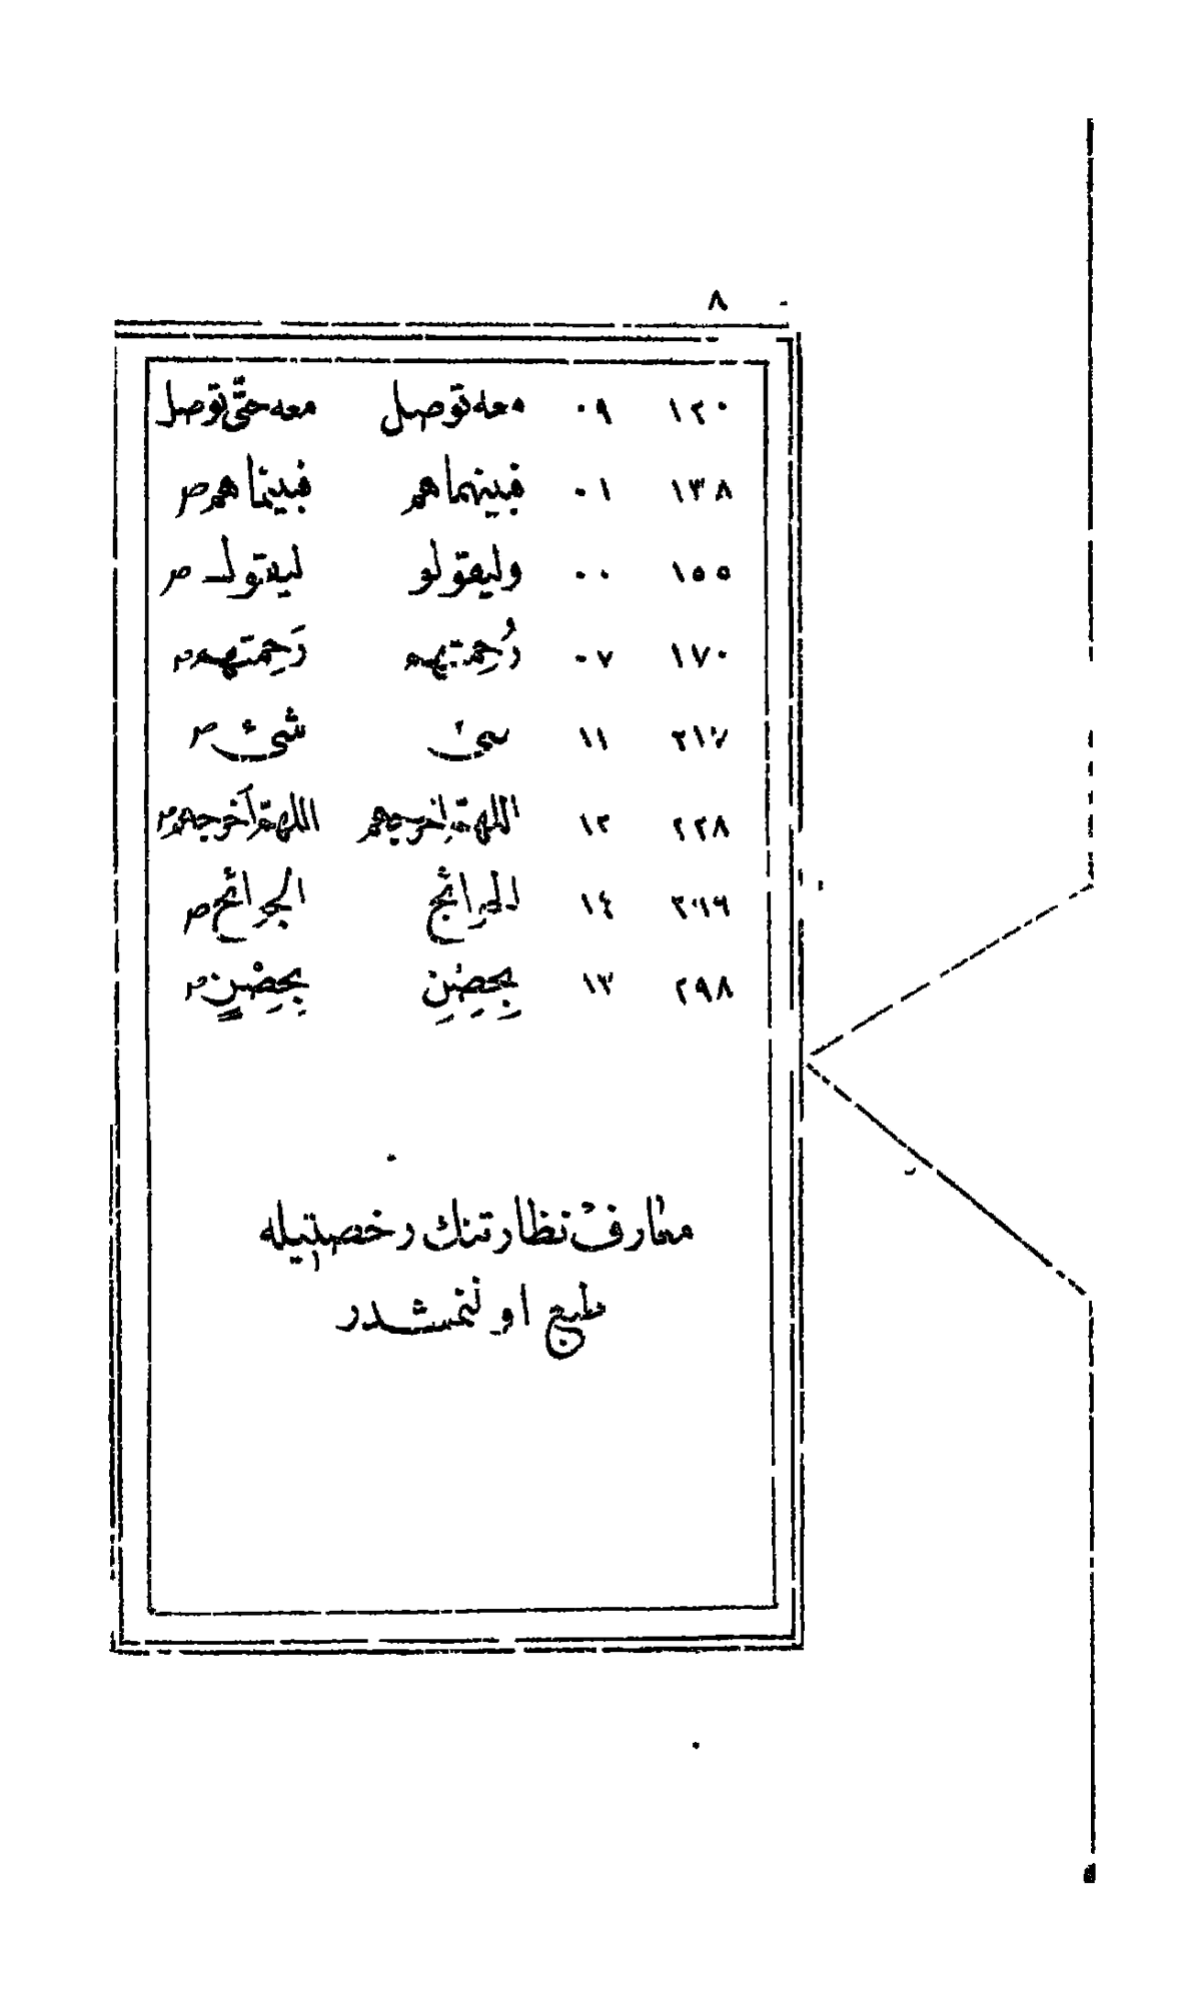 ٨
١٢٠ ٠٩ معه توصل معه حتّى توصل
١٣٨ ٠١ فبينهماهم فبينماهم ص
١٥٥ ٠٠ وليقولو ليقول ص
١٧٠ ٠٧ رُحِمتهم رَحِمتهم ص
١١ شئ ص
٢٢٨ ١٢ اللهمّ اِخرجهم اللهمّ اَخرجهم ص
١٤ الجرائح ص
٢٩٨ ١٣ بِحِصْنٍ ص
معارف نظارتنك رخصتيله
طبع اولنمشدر